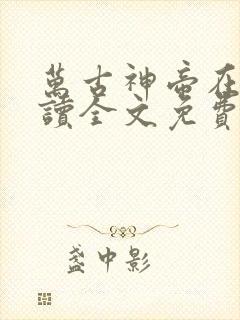 萬古神帝在
讀全文免費
盞中影